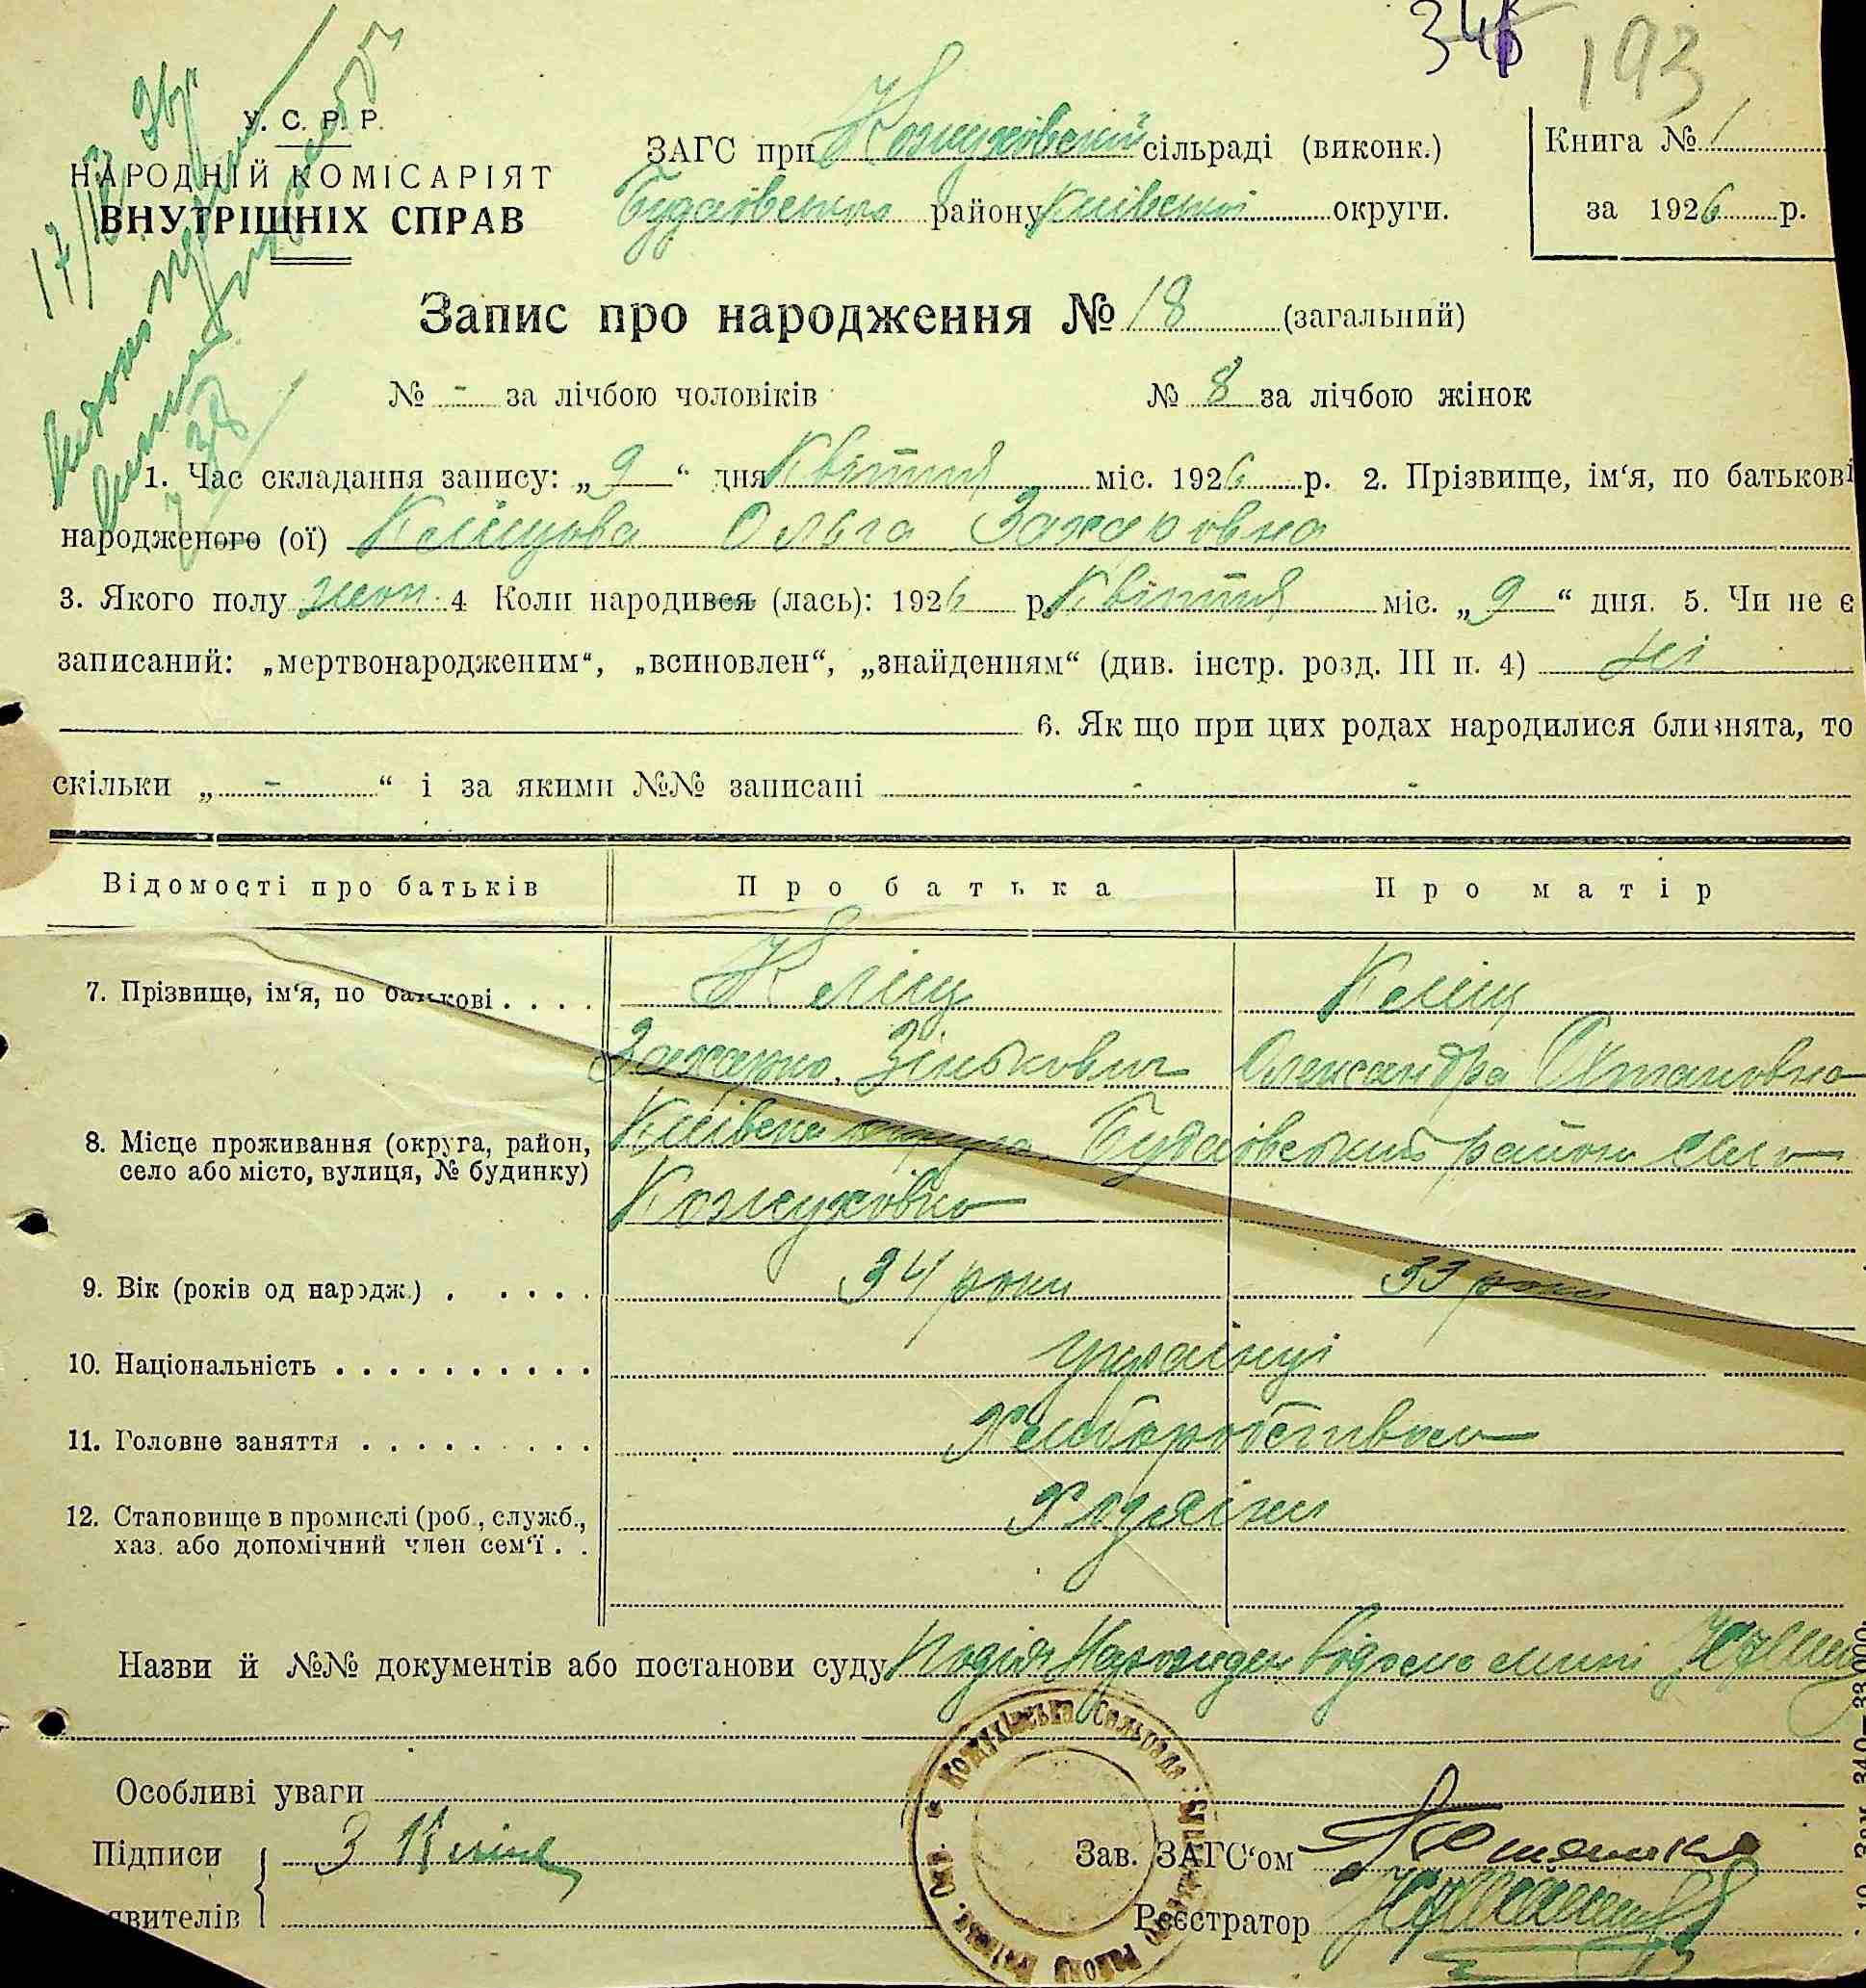 34
193
У. С. Р. Р.
НАРОДНІЙ КОМІСАРІЯТ
ВНУТРІШНІХ СПРАВ
ЗАГС при Кожухівський сільраді (виконк.)
Будаївського району Київської округи.
Книга № 1
за 1926 р.
Запис про народження № 18 (загальний)
№ - за лічбою чоловіків № 8 за лічбою жінок
1. Час складання запису: „ 9 “ дня Квітня міс. 1926 р. 2. Прізвище, ім‘я, по батькові
народженого (ої) Кліщова Ольга Захаровна
3. Якого полу жон. 4 Коли народився (лась): 1926 р. Квітня міс. „ 9 “ дня. 5. Чи не є
записаний: „мертвонародженим“, „всиновлен“, „знайденням“ (див. інстр. розд. III п. 4) ні
6. Як що при цих родах народилися близнята, то
скільки „ - “ і за якими №№ записані - -
Відомості про батьків Про батька Про матір
7. Прізвище, ім‘я, по батькові . . . . Кліщ Кліщ
Захарко Зінькович Олександра
8. Місце проживання (округа, район, Київська округа Будаївський район село
село або місто, вулиця, № будинку) Кожухівка
9. Вік (років од народж.) . . . . . 34 роки 33 роки
10. Національність . . . . . . . . . . Українці
11. Головне заняття . . . . . . . . . Хліборобство
12. Становище в промислі (роб., служб.,
хаз. або допомічний член сем‘ї . . Хазяїни
Назви й №№ документів або постанови суду Подія Народжен відома мині
Особливі уваги
Підписи З Кліщ
явителів
Зав. ЗАГС‘ом
Реєстратор
Кожухівська Сельрада